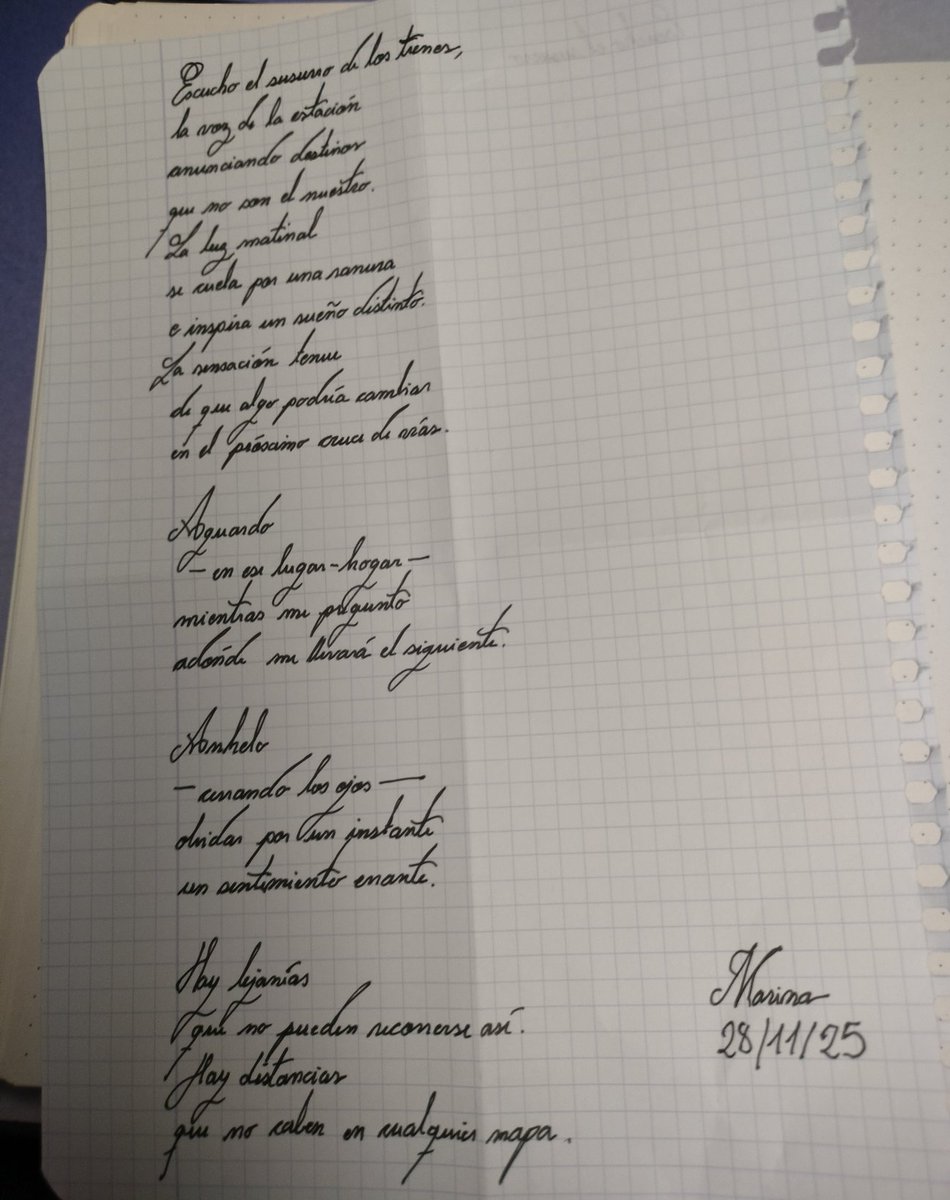 Escucho el susurro de los trenes,
la voz de la estación
anunciando destinos
que no son el nuestro.
La luz matinal
se cuela por una ranura
e inspira un sueño distinto.
La sensación tenue
de que algo podría cambiar
en el próximo cruce de vías.
Aguardo
– en ese lugar-hogar –
mientras me pregunto
adónde me llevará el siguiente.
Anhelo
– cerrando los ojos –
olvidar por un instante
un sentimiento errante.
Hay lejanías
que no pueden recorrerse así.
Hay distancias
que no caben en cualquier mapa.
Marina
28/11/25